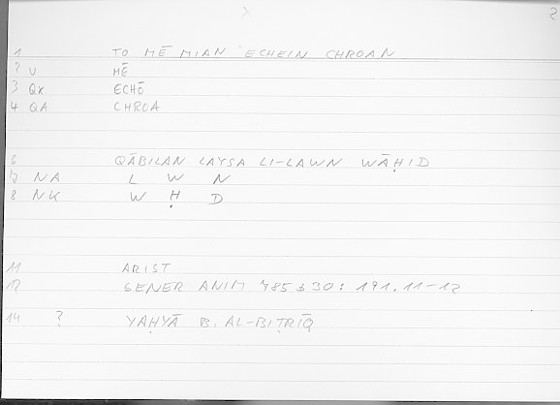 2
1 TO MĒ MIAN ECHEIN CHROAN
2 V MĒ
3 QX ECHŌ
4 QA CHROA
6 QĀBILAN LAYSA LI-LAWN WĀḤID
7 NA L W N
8 NK W Ḥ D
11 ARIST
12 GENER ANIM 785 b 30: 191.11-12
14 ? YAḤYĀ B. AL-BIṬRĪQ